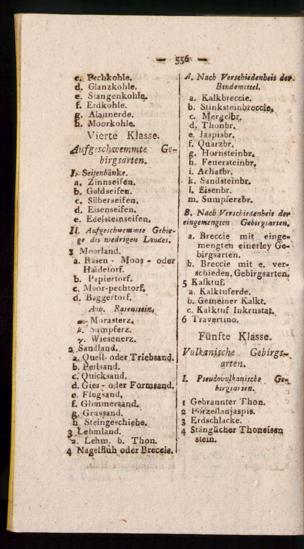 — 556 —
c. Pechkohle.
d. Glanzkohle.
e. Stangenkohle.
f. Erdkohle.
g. Alaunerde.
h. Moorkohle.
Vierte Klasse.
Aufgeschwemmte Ge-
birgsarten.
I. Seifenbänke.
a. Zinnseifen.
b. Goldseifen.
c. Silberseifen.
d. Eisenseifen.
e. Edelsteinseifen.
II. Aufgeschwemmte Gebir-
ge des niedrigen Landes.
1 Moorland.
a. Rasen - Moos - oder
Haidetorf.
b. Papiertorf.
c. Moor-pechtorf.
d. Baggertorf.
Anh. Rasenstein.
α. Morasterz.
β. Sumpferz.
γ. Wiesenerz.
2 Sandland.
a. Quell- oder Triebsand.
b. Perlsand.
c. Quicksand.
d. Gies- oder Formsand.
e. Flugsand.
f. Glimmersand.
g. Grussand.
h. Steingeschiebe.
3 Lehmland.
a. Lehm, b. Thon.
4 Nagelflüh oder Breccie.
A. Nach Verschiedenheit der
Bindemittel.
a. Kalkbreccie.
b. Stinksteinbreccie.
c. Mergelbr.
d. Thonbr.
e. Jaspisbr.
f. Quarzbr.
g. Hornsteinbr.
h. Feuersteinbr.
i. Achatbr.
k. Sandsteinbr.
l. Eisenbr.
m. Sumpferzbr.
B. Nach Verschiedenheit der
eingemengten Gebirgsarten.
a. Breccie mit einge-
mengten einerley Ge-
birgsarten.
b. Breccie mit e. ver-
schieden. Gebirgsarten.
5 Kalktuf.
a. Kalktuferde.
b. Gemeiner Kalkt.
c. Kalktuf Inkrustat.
6 Travertino.
Fünfte Klasse.
Vulkanische Gebirgs-
arten.
I. Pseudovulkanische Ge-
birgsarten.
1 Gebrannter Thon.
2 Porzellanjaspis.
3 Erdschlacke.
4 Stänglicher Thoneisen
stein.